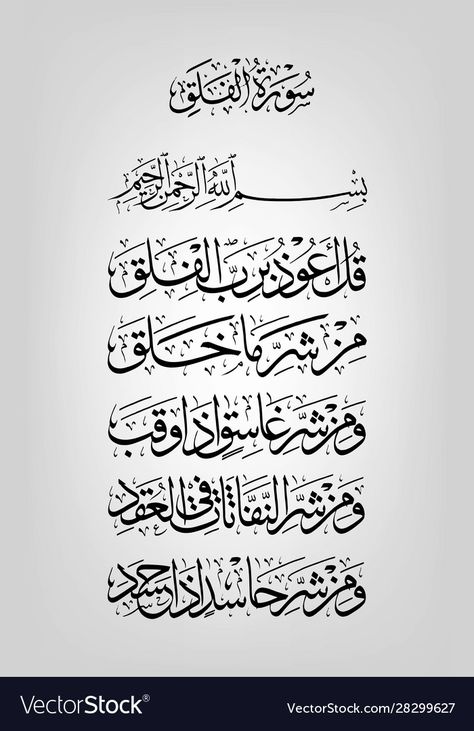 سُورَةُ الفَلَقِ
بِسْمِ اللَّهِ الرَّحْمنِ الرَّحِيمِ
قُلْ أَعُوذُ بِرَبِّ الفَلَقِ
مِنْ شَرِّ مَا خَلَقَ
وَمِنْ شَرِّ غَاسِقٍ إِذَا وَقَبَ
وَمِنْ شَرِّ النَّفَّاثَاتِ فِي العُقَدِ
وَمِنْ شَرِّ حَاسِدٍ إِذَا حَسَدَ
VectorStock® VectorStock.com/28299627